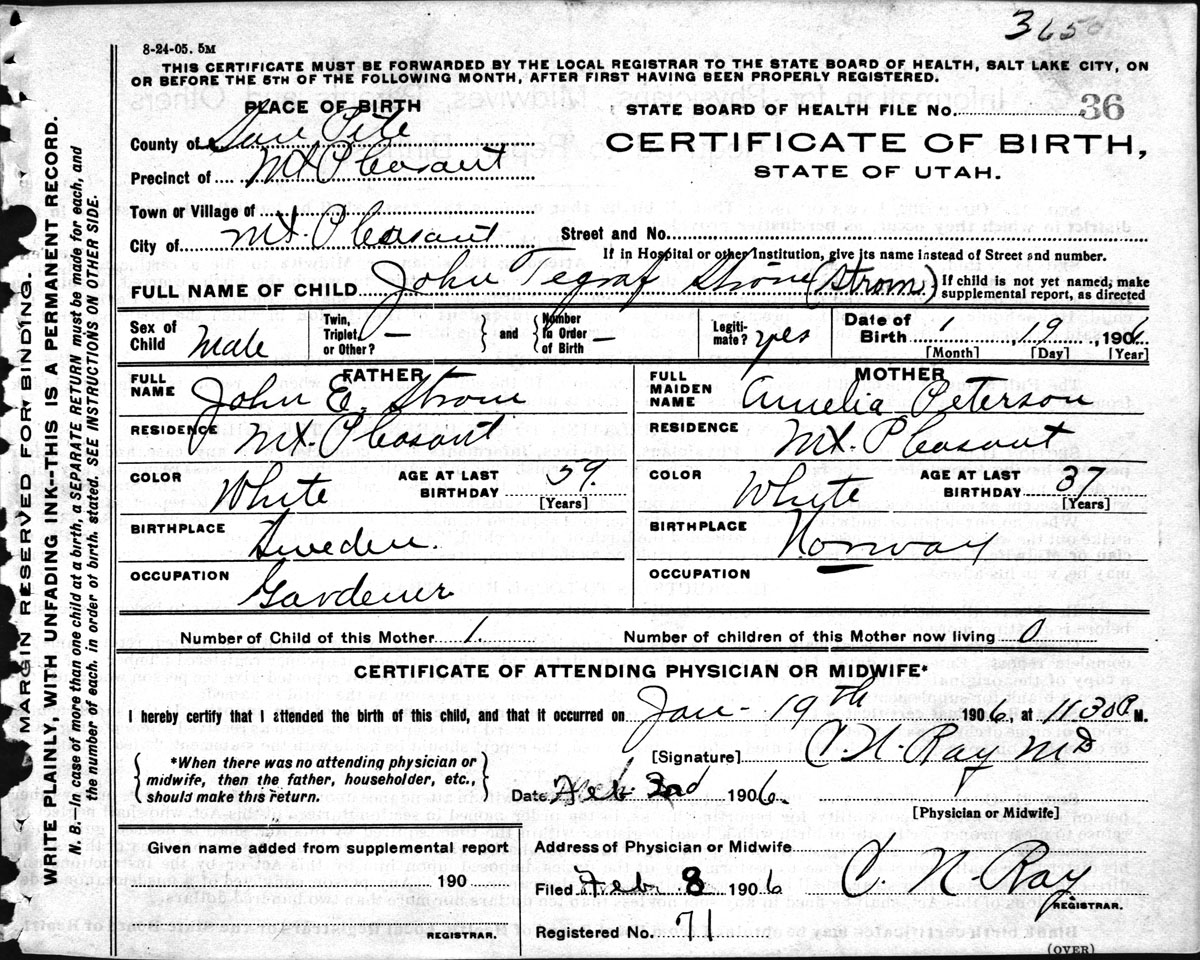 3650
8-24-05. 5M
THIS CERTIFICATE MUST BE FORWARDED BY THE LOCAL REGISTRAR TO THE STATE BOARD OF HEALTH, SALT LAKE CITY, ON
OR BEFORE THE 5TH OF THE FOLLOWING MONTH, AFTER FIRST HAVING BEEN PROPERLY REGISTERED.
PLACE OF BIRTH
STATE BOARD OF HEALTH FILE No. 36
County of San Pete
CERTIFICATE OF BIRTH,
Precinct of Mt. Pleasant
STATE OF UTAH.
Town or Village of
City of Mt. Pleasant Street and No.
If in Hospital or other Institution, give its name instead of Street and number.
FULL NAME OF CHILD John (Strom) If child is not yet named, make supplemental report, as directed
Sex of Child Male Twin, Triplet, or Other? — and Number in Order of Birth — Legitimate? yes Date of Birth 1 19, 1906
[Month] [Day] [Year]
FATHER
FULL NAME John E. Strom
RESIDENCE Mt. Pleasant
COLOR White AGE AT LAST BIRTHDAY 59. [Years]
BIRTHPLACE Sweden.
OCCUPATION Gardener
MOTHER
FULL MAIDEN NAME Amelia Peterson
RESIDENCE Mt. Pleasant
COLOR White AGE AT LAST BIRTHDAY 37 [Years]
BIRTHPLACE Norway
OCCUPATION
Number of Child of this Mother 1. Number of children of this Mother now living 0
CERTIFICATE OF ATTENDING PHYSICIAN OR MIDWIFE*
I hereby certify that I attended the birth of this child, and that it occurred on Jan- 19th 1906, at 11 30 P M.
*When there was no attending physician or midwife, then the father, householder, etc., should make this return.
[Signature] C. N. Ray MD
Date Feb 2nd 1906.
[Physician or Midwife]
Given name added from supplemental report
190
REGISTRAR.
Address of Physician or Midwife
Filed Feb 8 1906 C. N Ray
REGISTRAR.
Registered No. 71
(OVER)
MARGIN RESERVED FOR BINDING.
WRITE PLAINLY, WITH UNFADING INK--THIS IS A PERMANENT RECORD.
N. B.—In case of more than one child at a birth, a SEPARATE RETURN must be made for each, and
the number of each, in order of birth, stated. SEE INSTRUCTIONS ON OTHER SIDE.